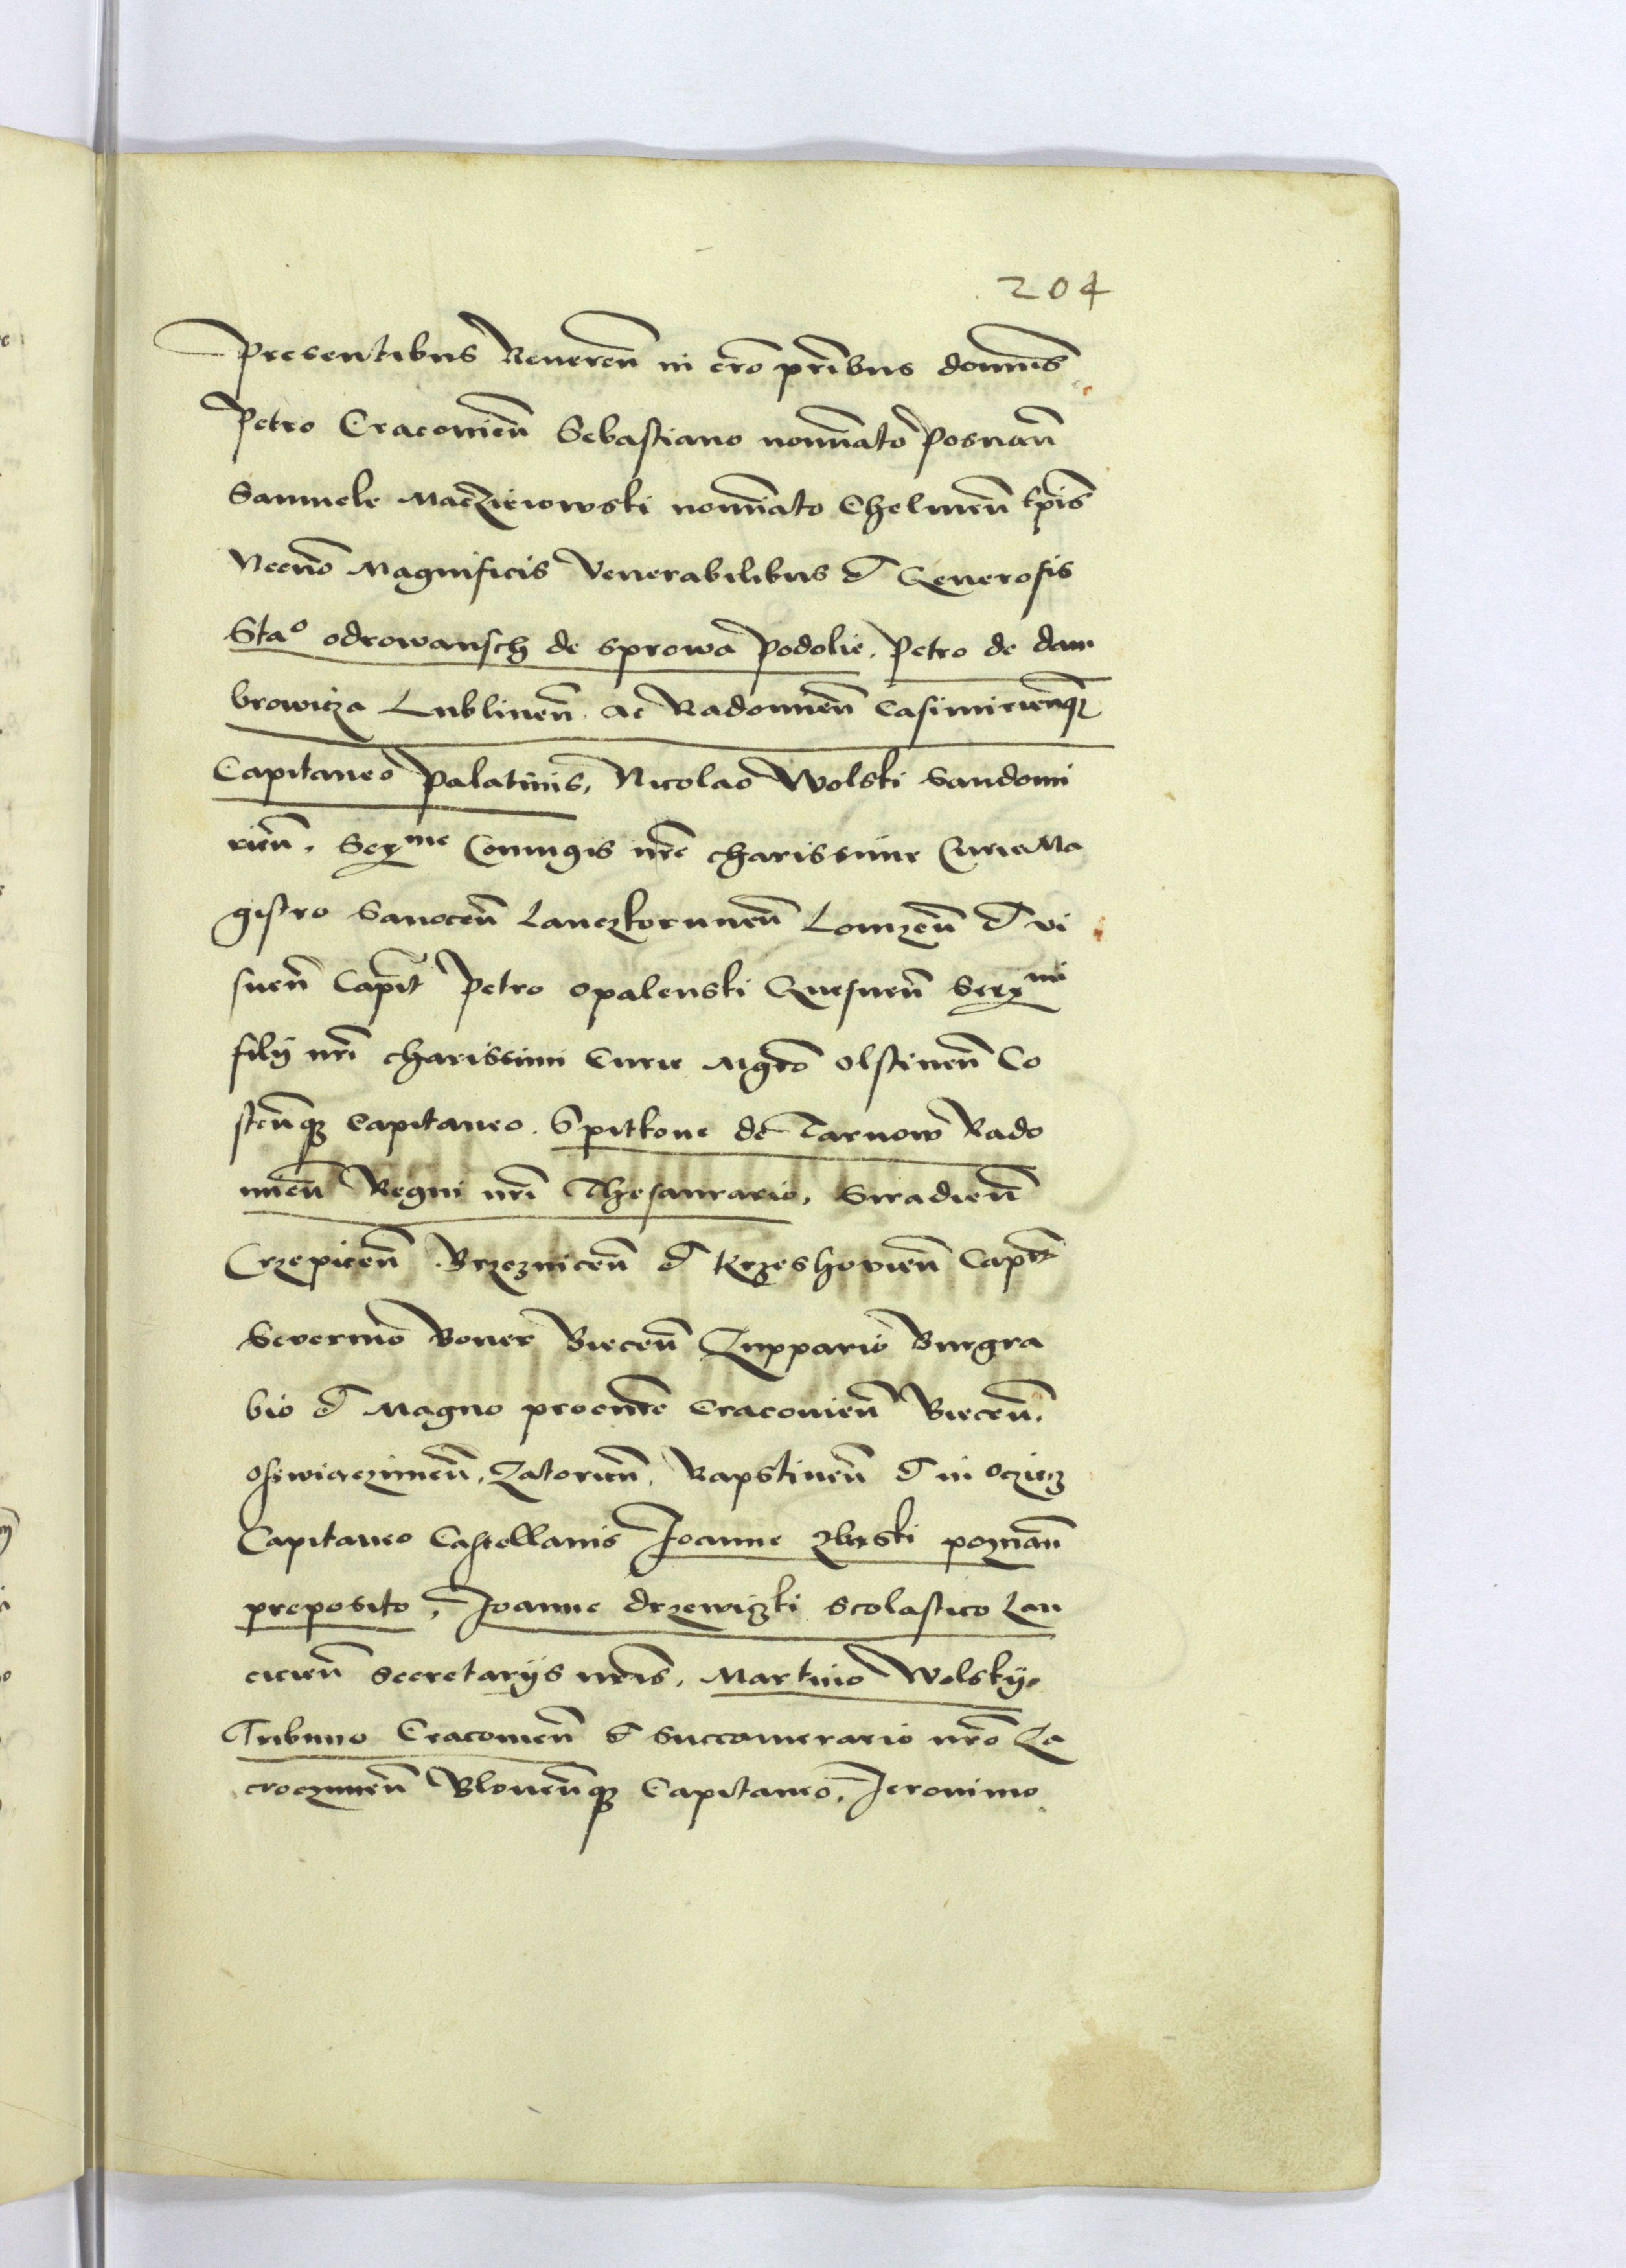 204
presentibus Reveren̄ in cr̄o pr̄ibus domīnis
Petro Cracovien̄ Sebastiano nomīnato Posnan̄
Samuele Maczieiowski nomīnato Chelmen̄ Ep̄is
Necnō Magnificis Venerabilibus et Generosis
Stao odrowansch de sprowa Podolie, Petro de dam
browicza Lublinen̄. ac Radomien̄ Casimirien̄q3
Capitaneo Palatinis, Nicolao Wolski Sandomi
rien̄, Serme Coniugis nr̄e charissime Curie Ma
gistro Sanocen̄ Lanczkorunen̄ Lomzen̄ et vi
snen̄ Capit̄ Petro opalenski Gnesnen̄ Sermi
filij nr̄i charissimi Curie Mgr̄o olstinen̄ Co
stien̄q3 Capitaneo. Spitkone de Tarnow Rado
mien̄ Regni nr̄i Thesaurario, Siradien̄
Crzepicen̄ Brzeznicen̄ et Krzeshovien̄ Capit̄
Severino Boner Biecen̄ Zuppario Burgra
bio et Magno procur̄e Cracovien̄ Biecen̄.
osswiaczimen̄, Zatorien̄, Rapstinen̄ et in oczicz
Capitaneo Castellanis Joanne zbąski poznan̄
preposito, Joanne drzewiczki scolastico Lan
cicien̄ Secretarijs nr̄is, Martino Wolsky
Tribuno Cracovien̄ et Succamerario nr̄o Za
croczimen̄ Blonen̄q3 Capitaneo, Jeronimo